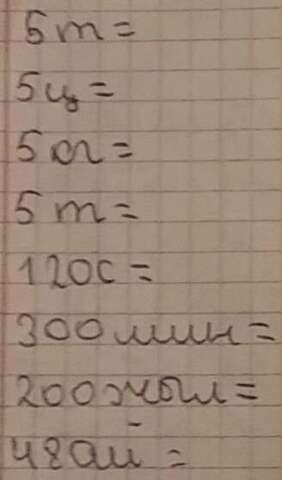 5 т =
5 ц =
5 сл =
5 т =
120 с =
300 мин =
200 жыл =
48 ай =